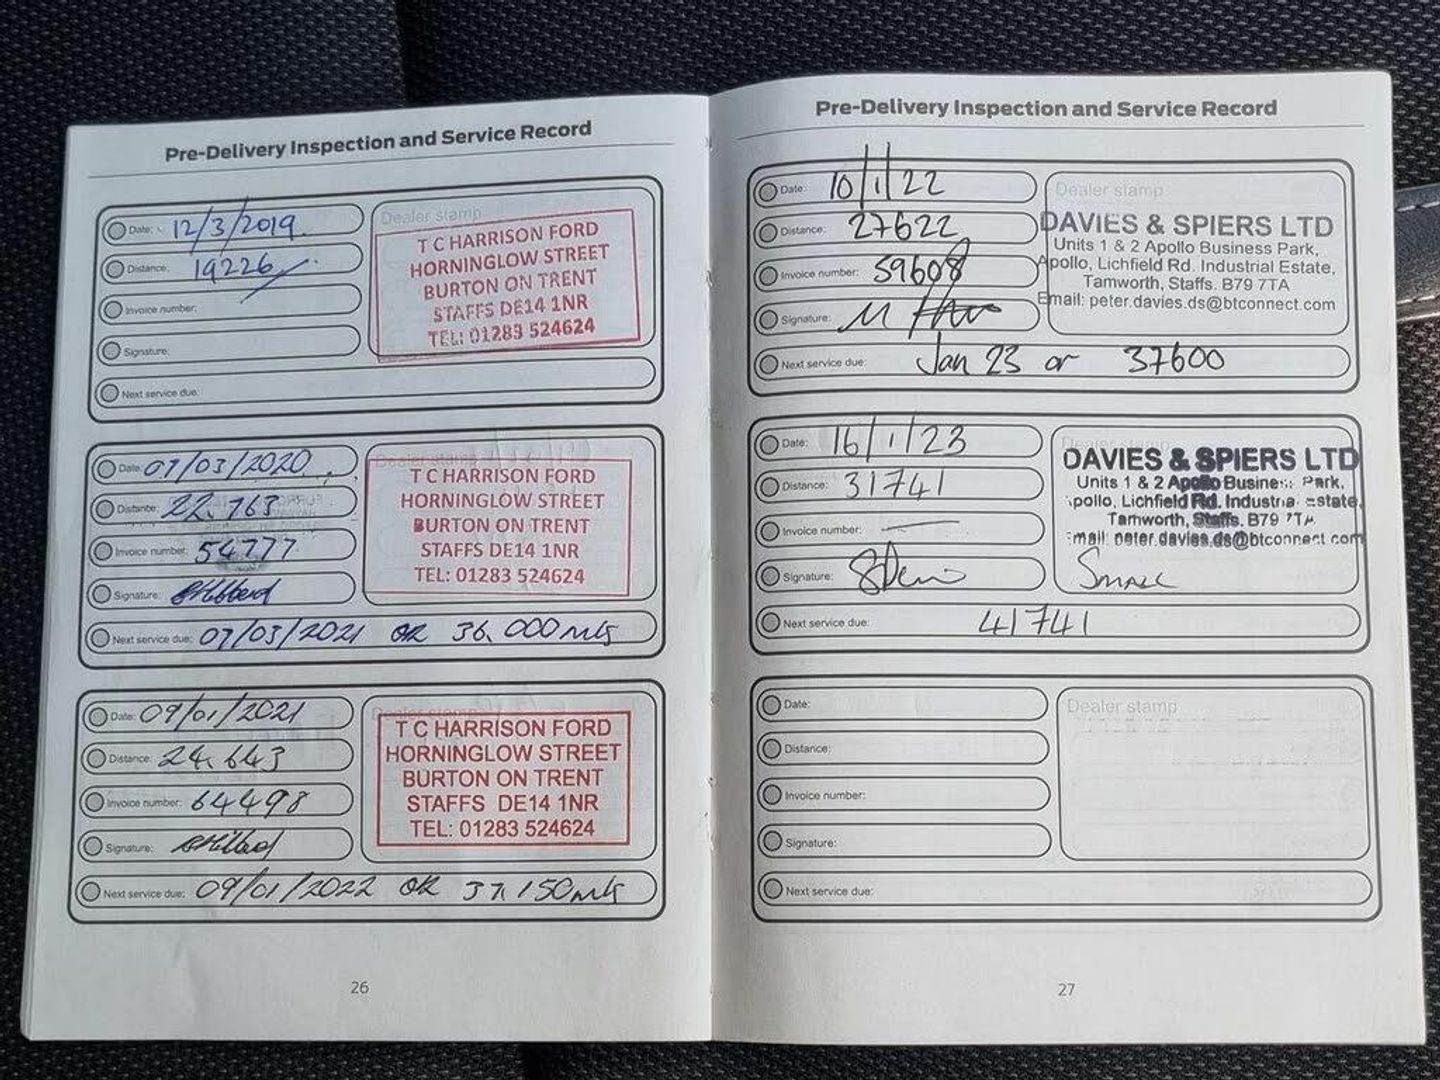 Pre-Delivery Inspection and Service Record
Date: 12/3/2019
Distance: 19226
Invoice number:
Signature:
Next service due:
Dealer stamp
T C HARRISON FORD
HORNINGLOW STREET
BURTON ON TRENT
STAFFS DE14 1NR
TEL: 01283 524624
Date: 07/03/2020
Distante: 22.763
Invoice number: 54777
Signature:
Next service due: 07/03/2021 OR 36.000 mls
Dealer stamp
T C HARRISON FORD
HORNINGLOW STREET
BURTON ON TRENT
STAFFS DE14 1NR
TEL: 01283 524624
Date: 09/01/2021
Distance: 24.643
Invoice number: 64498
Signature:
Next service due: 09/01/2022 OR 37.150 mls
Dealer stamp
T C HARRISON FORD
HORNINGLOW STREET
BURTON ON TRENT
STAFFS DE14 1NR
TEL: 01283 524624
26
Pre-Delivery Inspection and Service Record
Date: 10/1/22
Distance: 27622
Invoice number: 59608
Signature:
Next service due: Jan 23 or 37600
Dealer stamp
DAVIES & SPIERS LTD
Units 1 & 2 Apollo Business Park,
Apollo, Lichfield Rd. Industrial Estate,
Tamworth, Staffs. B79 7TA
Email: peter.davies.ds@btconnect.com
Date: 16/1/23
Distance: 31741
Invoice number: —
Signature:
Next service due: 41741
Dealer stamp
DAVIES & SPIERS LTD
Units 1 & 2 Apollo Business Park,
pollo, Lichfield Rd. Industrial Estate,
Tamworth, Staffs. B79 7TA
Email: peter.davies.ds@btconnect.com
Small
Date:
Distance:
Invoice number:
Signature:
Next service due:
Dealer stamp
27